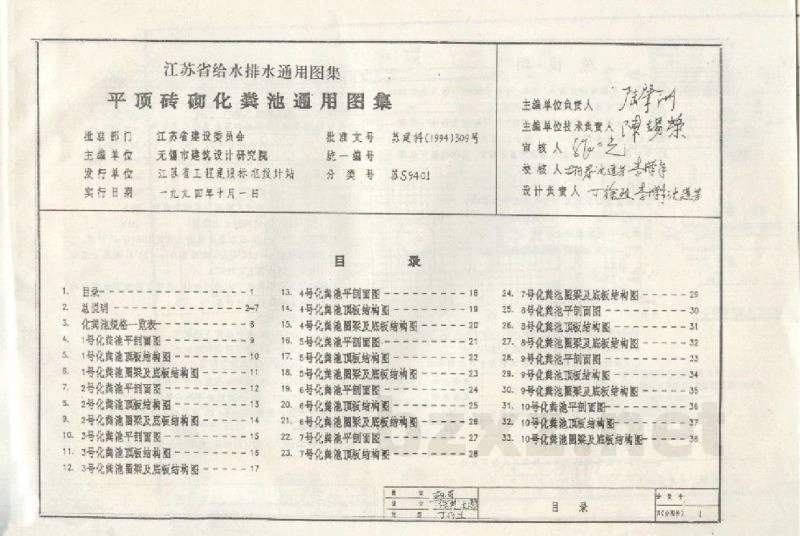 江苏省给水排水通用图集
平顶砖砌化粪池通用图集
批准部门 江苏省建设委员会 批准文号 苏建科(1994)309号
主编单位 无锡市建筑设计研究院 统一编号
发行单位 江苏省工程建设标准设计站 分类号 苏S9401
实行日期 一九九四年十月一日
主编单位负责人
主编单位技术负责人 陳錫榮
审核人
校核人
设计负责人
目 录
1. 目录 1
2. 总说明 2-7
3. 化粪池规格一览表 8
4. 1号化粪池平剖面图 9
5. 1号化粪池顶板结构图 10
6. 1号化粪池圈梁及底板结构图 11
7. 2号化粪池平剖面图 12
8. 2号化粪池顶板结构图 13
9. 2号化粪池圈梁及底板结构图 14
10. 3号化粪池平剖面图 15
11. 3号化粪池顶板结构图 16
12. 3号化粪池圈梁及底板结构图 17
13. 4号化粪池平剖面图 18
14. 4号化粪池顶板结构图 19
15. 4号化粪池圈梁及底板结构图 20
16. 5号化粪池平剖面图 21
17. 5号化粪池顶板结构图 22
18. 5号化粪池圈梁及底板结构图 23
19. 6号化粪池平剖面图 24
20. 6号化粪池顶板结构图 25
21. 6号化粪池圈梁及底板结构图 26
22. 7号化粪池平剖面图 27
23. 7号化粪池顶板结构图 28
24. 7号化粪池圈梁及底板结构图 29
25. 8号化粪池平剖面图 30
26. 8号化粪池顶板结构图 31
27. 8号化粪池圈梁及底板结构图 32
28. 9号化粪池平剖面图 33
29. 9号化粪池顶板结构图 34
30. 9号化粪池圈梁及底板结构图 35
31. 10号化粪池平剖面图 36
32. 10号化粪池顶板结构图 37
33. 10号化粪池圈梁及底板结构图 38
目 录
1